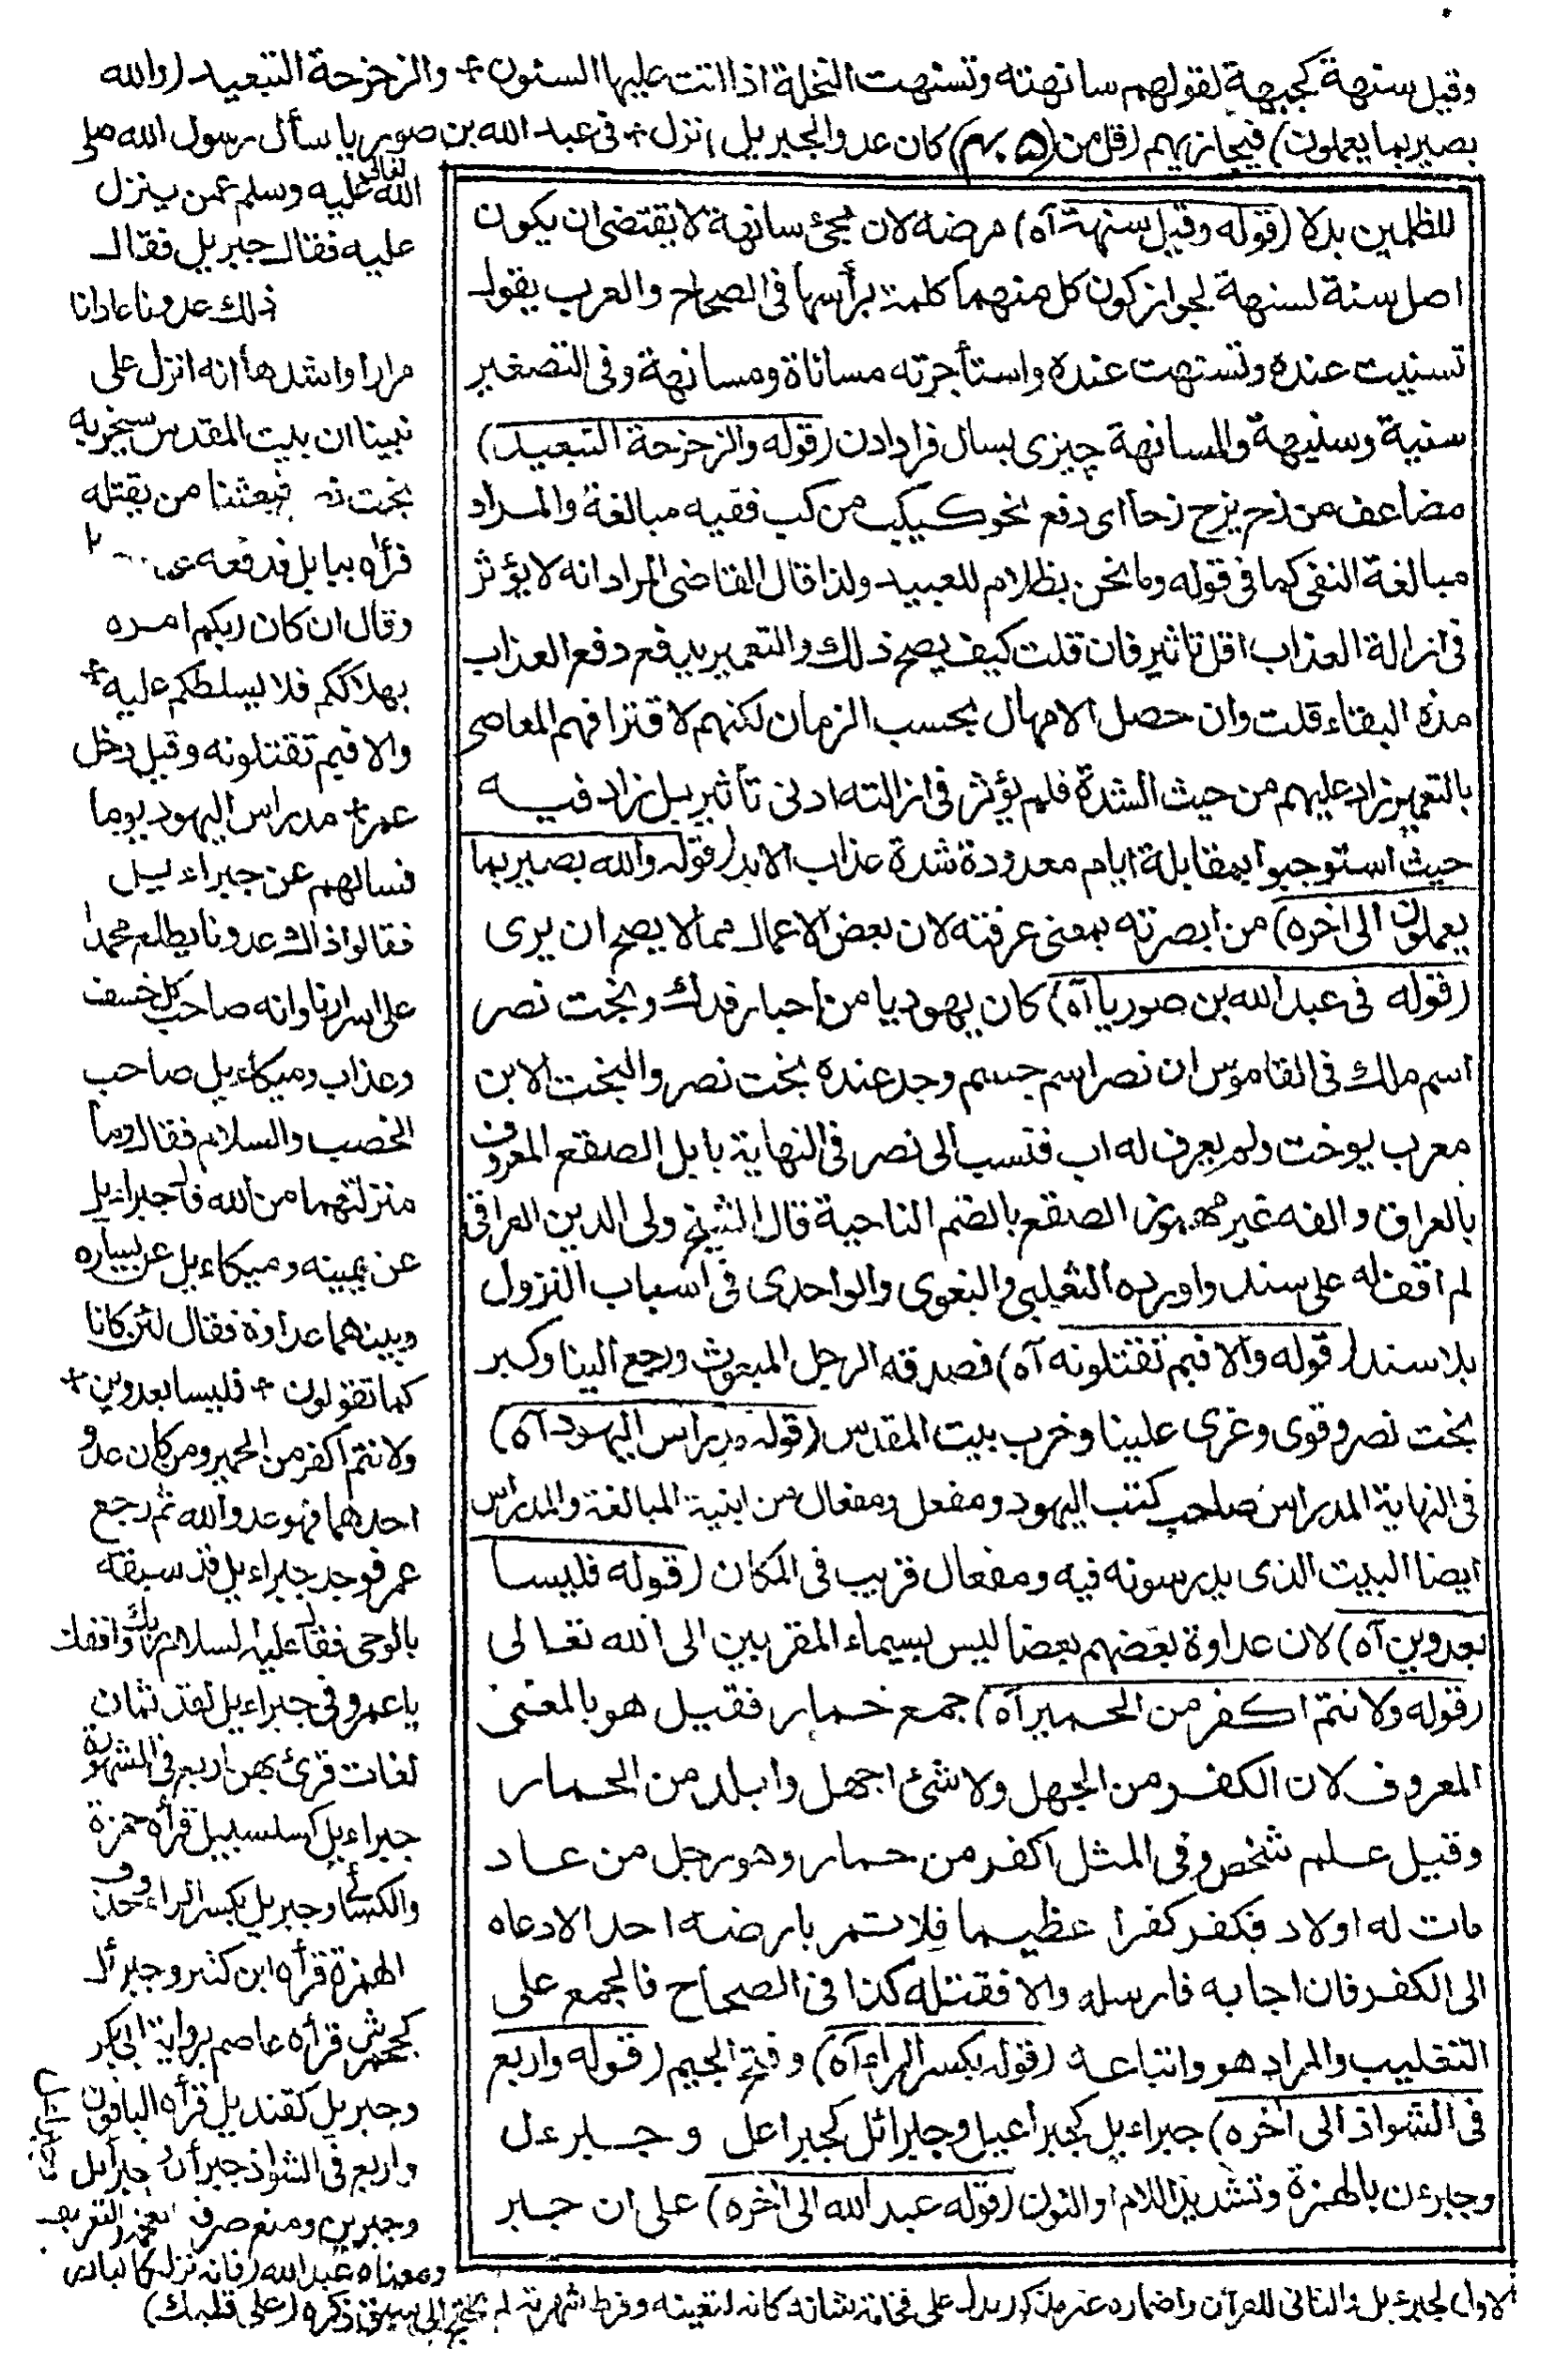 وقيل سنهة كجبهة لقولهم سانهته وتسنهت النخلة اذا اتت عليها السنون + والزحزحة التبعيد (والله
بصير بما يعملون) فيجازيهم (قل من كان عدوا لجبريل) نزل + فى عبد الله بن صوريا سأل رسول الله صلى
الله تعالى عليه وسلم عمن ينزل
عليه فقال جبريل فقال
ذلك عدونا عادانا
مرارا واشدها انه انزل على
نبينا ان بيت المقدس سيخربه
بخت نصر فبعثنا من يقتله
فرآه ببابل فدفعه عنه
وقال ان كان ربكم امره
بهلاككم فلا يسلطكم عليه +
والا فبم تقتلونه وقيل دخل
عمر + مدراس اليهود يوما
فسالهم عن جبراءيل
فقالوا ذاك عدونا يطلع محمدا
على اسرارنا وانه صاحب كل خسف
وعذاب وميكاءيل صاحب
الخصب والسلام فقال وما
منزلتهما من الله قالوا جبراءيل
عن يمينه وميكاءيل عن يساره
وبينهما عداوة فقال لئن كانا
كما تقولون + فليسا بعدوين +
ولانتم اكفر من الحمير ومن كان عدو
احدهما فهو عدو الله ثم رجع
عمر فوجد جبراءيل قد سبقه
بالوحى فقال عليه السلام لقد وافقك ربك
يا عمر وفى جبراءيل ثمان
لغات قرئ بهن اربع فى المشهورة
جبراءيل كسلسبيل قرأه حمزة
والكسائى وجبريل بكسر الراء وحذف
الهمزة قرأه ابن كثير وجبرأل
كجحمرش قرأه عاصم برواية ابى بكر
وجبريل كقنديل قرأه الباقون
واربع فى الشواذ جبرأل جبرائيل
وجبرين ومنع صرفه للعجمة والتعريف
ومعناه عبد الله (فانه نزله) البارز
الاول لجبرءيل والثانى للقرآن واضماره غير مذكور يدل على فخامة شانه كانه لتعينه وفرط شهرته لم يحتج الى سبق ذكره (على قلبك)
للظلمين بدلا (قوله وقيل سنهة آه) مرضه لان مجئ سانهة لا يقتضى ان يكون
اصل سنة لسنهة لجواز كون كل منهما كلمة برأسها فى الصحاح والعرب يقول
تسنيت عنده وتسنهت عنده واستأجرته مساناة ومسانهة وفى التصغير
سنية وسنيهة والمسانهة چيزى بسال فرا دادن (قوله والزحزحة التبعيد)
مضاعف من زح يزح زحا اى دفع نحو كبكب من كب ففيه مبالغة والمراد
مبالغة النفى كما فى قوله وما نحن بظلام للعبيد ولذا قال القاضى المراد انه لا يؤثر
فى ازالة العذاب اقل تاثير فان قلت كيف يصح ذلك والتعمير يدفع دفع العذاب
مدة البقاء قلت وان حصل الامهال بحسب الزمان لكنهم لاقترافهم المعاصى
بالتعمير زاد عليهم من حيث الشدة فلم يؤثر فى ازالته ادنى تأثير بل زاد فيه
حيث استوجبوا بمقابلة ايام معدودة شدة عذاب الابد (قوله والله بصير بما
يعملون الى آخره) من ابصرته بمعنى عرفته لان بعض الاعمال مما لا يصح ان يرى
(قوله فى عبد الله بن صوريا آه) كان يهوديا من احبار فدك وبخت نصر
اسم ملك فى القاموس ان نصر اسم جسم وجد عنده بخت نصر والبخت الابن
معرب بوخت ولم يعرف له اب فنسب الى نصر فى النهاية بابل الصقع المعروف
بالعراق والفه غير مهموز الصقع بالضم الناحية قال الشيخ ولى الدين العراقى
لم اقف له على سند واورده الثعلبى والبغوى والواحدى فى اسباب النزول
بلا سند (قوله والا فبم تقتلونه آه) فصدقه الرجل المبعوث ورجع الينا وكبر
بخت نصر وقوى وغزى علينا وخرب بيت المقدس (قوله مدراس اليهود آه)
فى النهاية المدراس صاحب كتب اليهود ومفعل ومفعال من ابنية المبالغة والمدراس
ايضا البيت الذى يدرسونه فيه ومفعال غريب فى المكان (قوله فليسا
بعدوين آه) لان عداوة بعضهم بعضا ليس بسيماء المقربين الى الله تعالى
(قوله ولانتم اكفر من الحمير آه) جمع حمار فقيل هو بالمعنى
المعروف لان الكفر من الجهل ولا شئ اجهل وابلد من الحمار
وقيل علم شخص وفى المثل اكفر من حمار وهو رجل من عاد
مات له اولاد فكفر كفرا عظيما فلا تمر بارضه احد الا دعاه
الى الكفر فان اجابه فارسله والا فقتله كذا فى الصحاح فالجمع على
التغليب والمراد هو واتباعه (قوله بكسر الراء آه) وفتح الجيم (قوله واربع
فى الشواذ الى آخره) جبراءيل كجبراعيل وجبرائل كجبراعل وجبرءل
وجبرءن بالهمزة وتشديد اللام او النون (قوله عبد الله الى آخره) على ان جبر